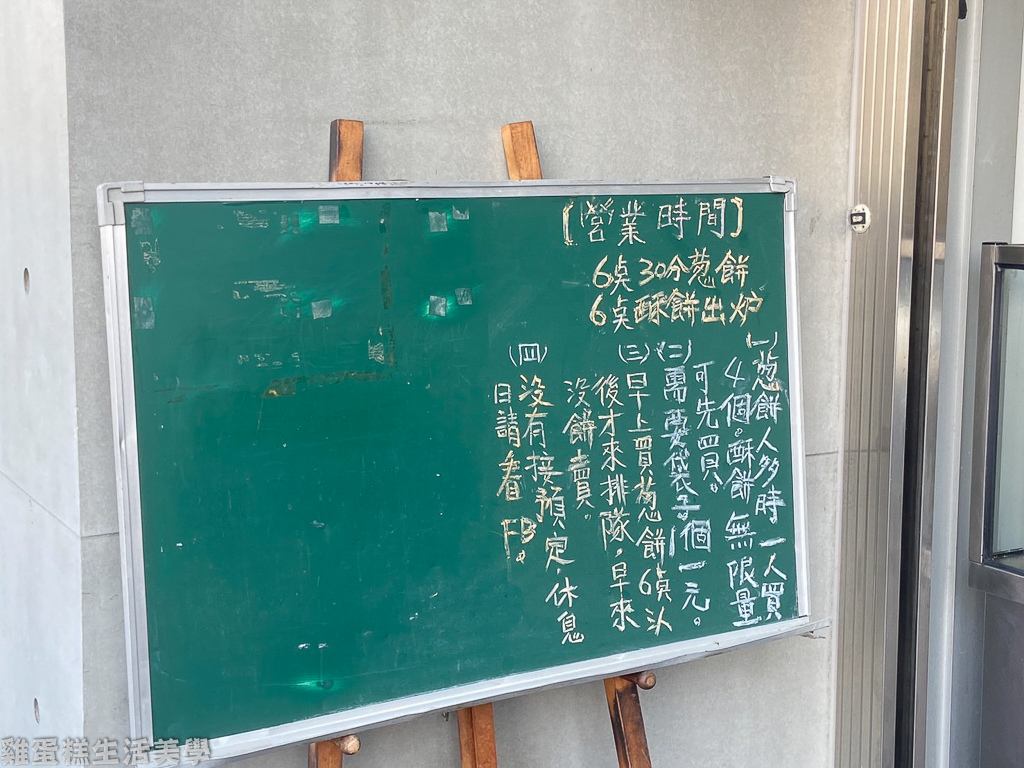 【營業時間】
6点30分葱餅
6点酥餅出炉
(一)葱餅人多時一人買
4個。酥餅無限量
可先買。
(二)需要袋子1個一元。
(三)早上買葱餅6点以
後才來排隊,早來
沒餅賣。
(四)沒有接預定休息
日請看FB。
雞蛋糕生活美學